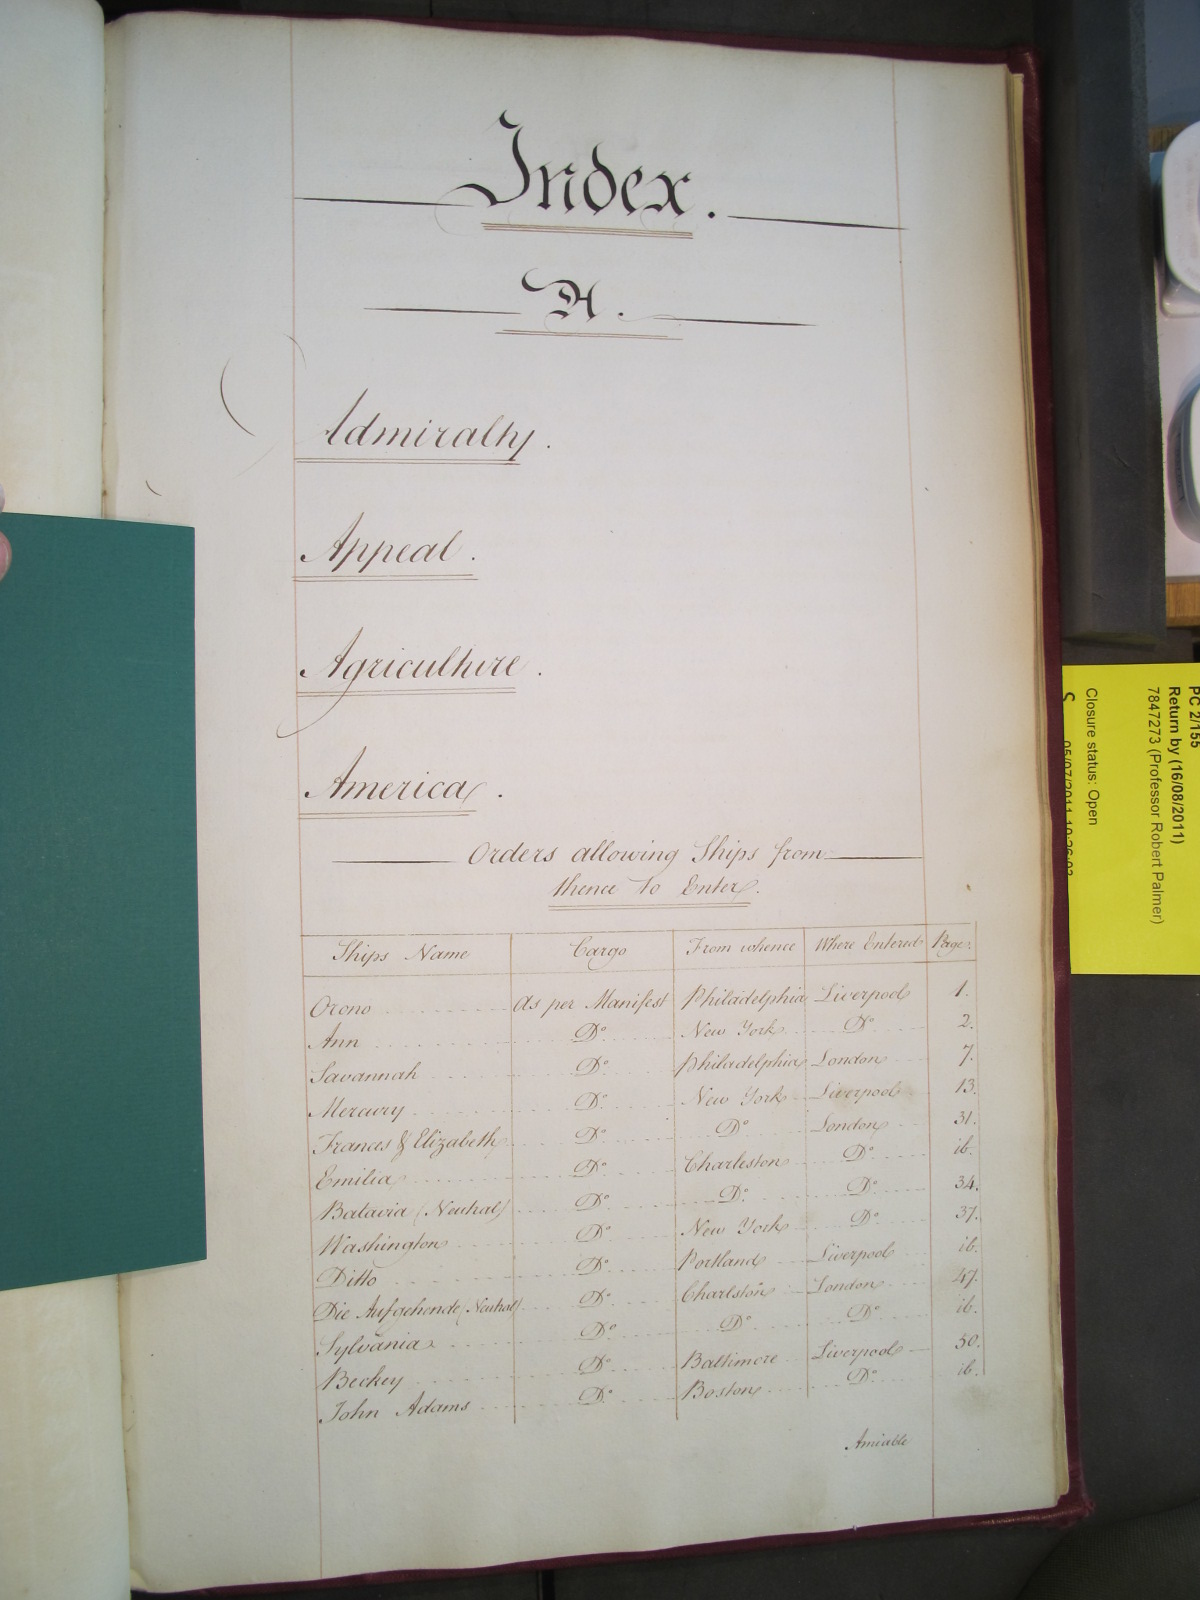 Index.
A.
Admiralty.
Appeal.
Agriculture.
America.
Orders allowing Ships from
thence to Enter.
Ships Name Cargo From whence Where Entered Page.
Orono As per Manifest Philadelphia Liverpool 1.
Ann Do New York Do 2.
Savannah Do Philadelphia London 7.
Mercury Do New York Liverpool 13.
Frances & Elizabeth Do Do London 31.
Emilia Do Charleston Do ib.
Batavia (Neutral) Do Do Do 34.
Washington Do New York Do 37.
Ditto Do Portland Liverpool ib.
Die Aufgehende (Neutral) Do Charlston London 47.
Sylvania Do Do Do ib.
Beckey Do Baltimore Liverpool 50.
John Adams Do Boston Do ib.
Amiable
PC 2/155
Return by (16/08/2011)
7847273 (Professor Robert Palmer)
Closure status: Open